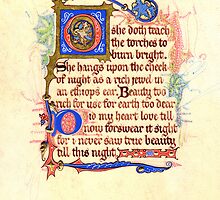 O she doth teach
the torches to
burn bright.
She hangs upon the cheek
of night as a rich jewel in
an ethiops ear. Beauty too
rich for use for earth too dear
Did my heart love till
now forswear it sight
for i never saw true beauty
till this night